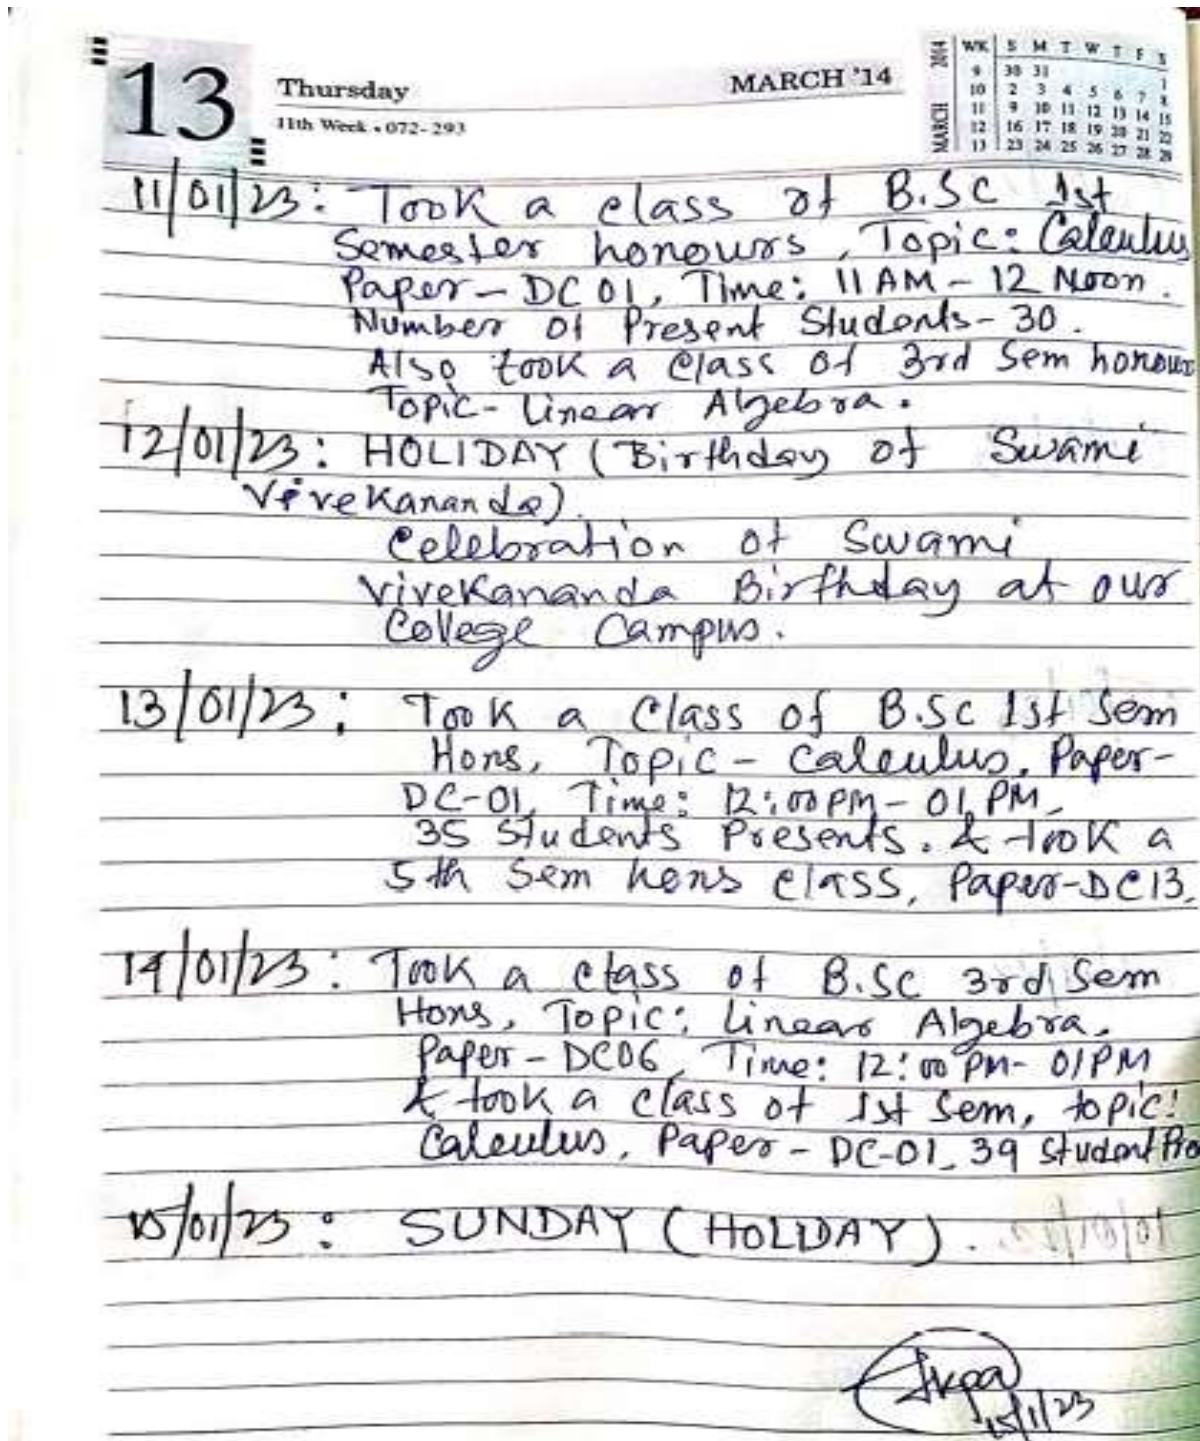 13
Thursday
MARCH '14
11th Week • 072-293
MARCH 2014
WK S M T W T F S
9 30 31 1
10 2 3 4 5 6 7 8
11 9 10 11 12 13 14 15
12 16 17 18 19 20 21 22
13 23 24 25 26 27 28 29
11/01/23: Took a class of B.SC 1st
Semester honours, Topic: Calculus
Paper - DC 01, Time: 11 AM - 12 Noon.
Number of Present Students - 30.
Also took a class of 3rd Sem honours
Topic - Linear Algebra.
12/01/23: HOLIDAY (Birthday of Swami
Vivekananda).
Celebration of Swami
Vivekananda Birthday at our
College Campus.
13/01/23: Took a Class of B.SC 1st Sem
Hons, Topic - Calculus, Paper-
DC-01, Time: 12:00 PM - 01 PM,
35 Students Presents. & took a
5th Sem hons class, Paper-DC13,
14/01/23: Took a class of B.SC 3rd Sem
Hons, Topic: Linear Algebra.
Paper - DC06, Time: 12:00 PM - 01 PM
& took a class of 1st Sem, topic:
Calculus, Paper - DC-01, 39 Student Pre
15/01/23: SUNDAY (HOLIDAY).
15/1/23